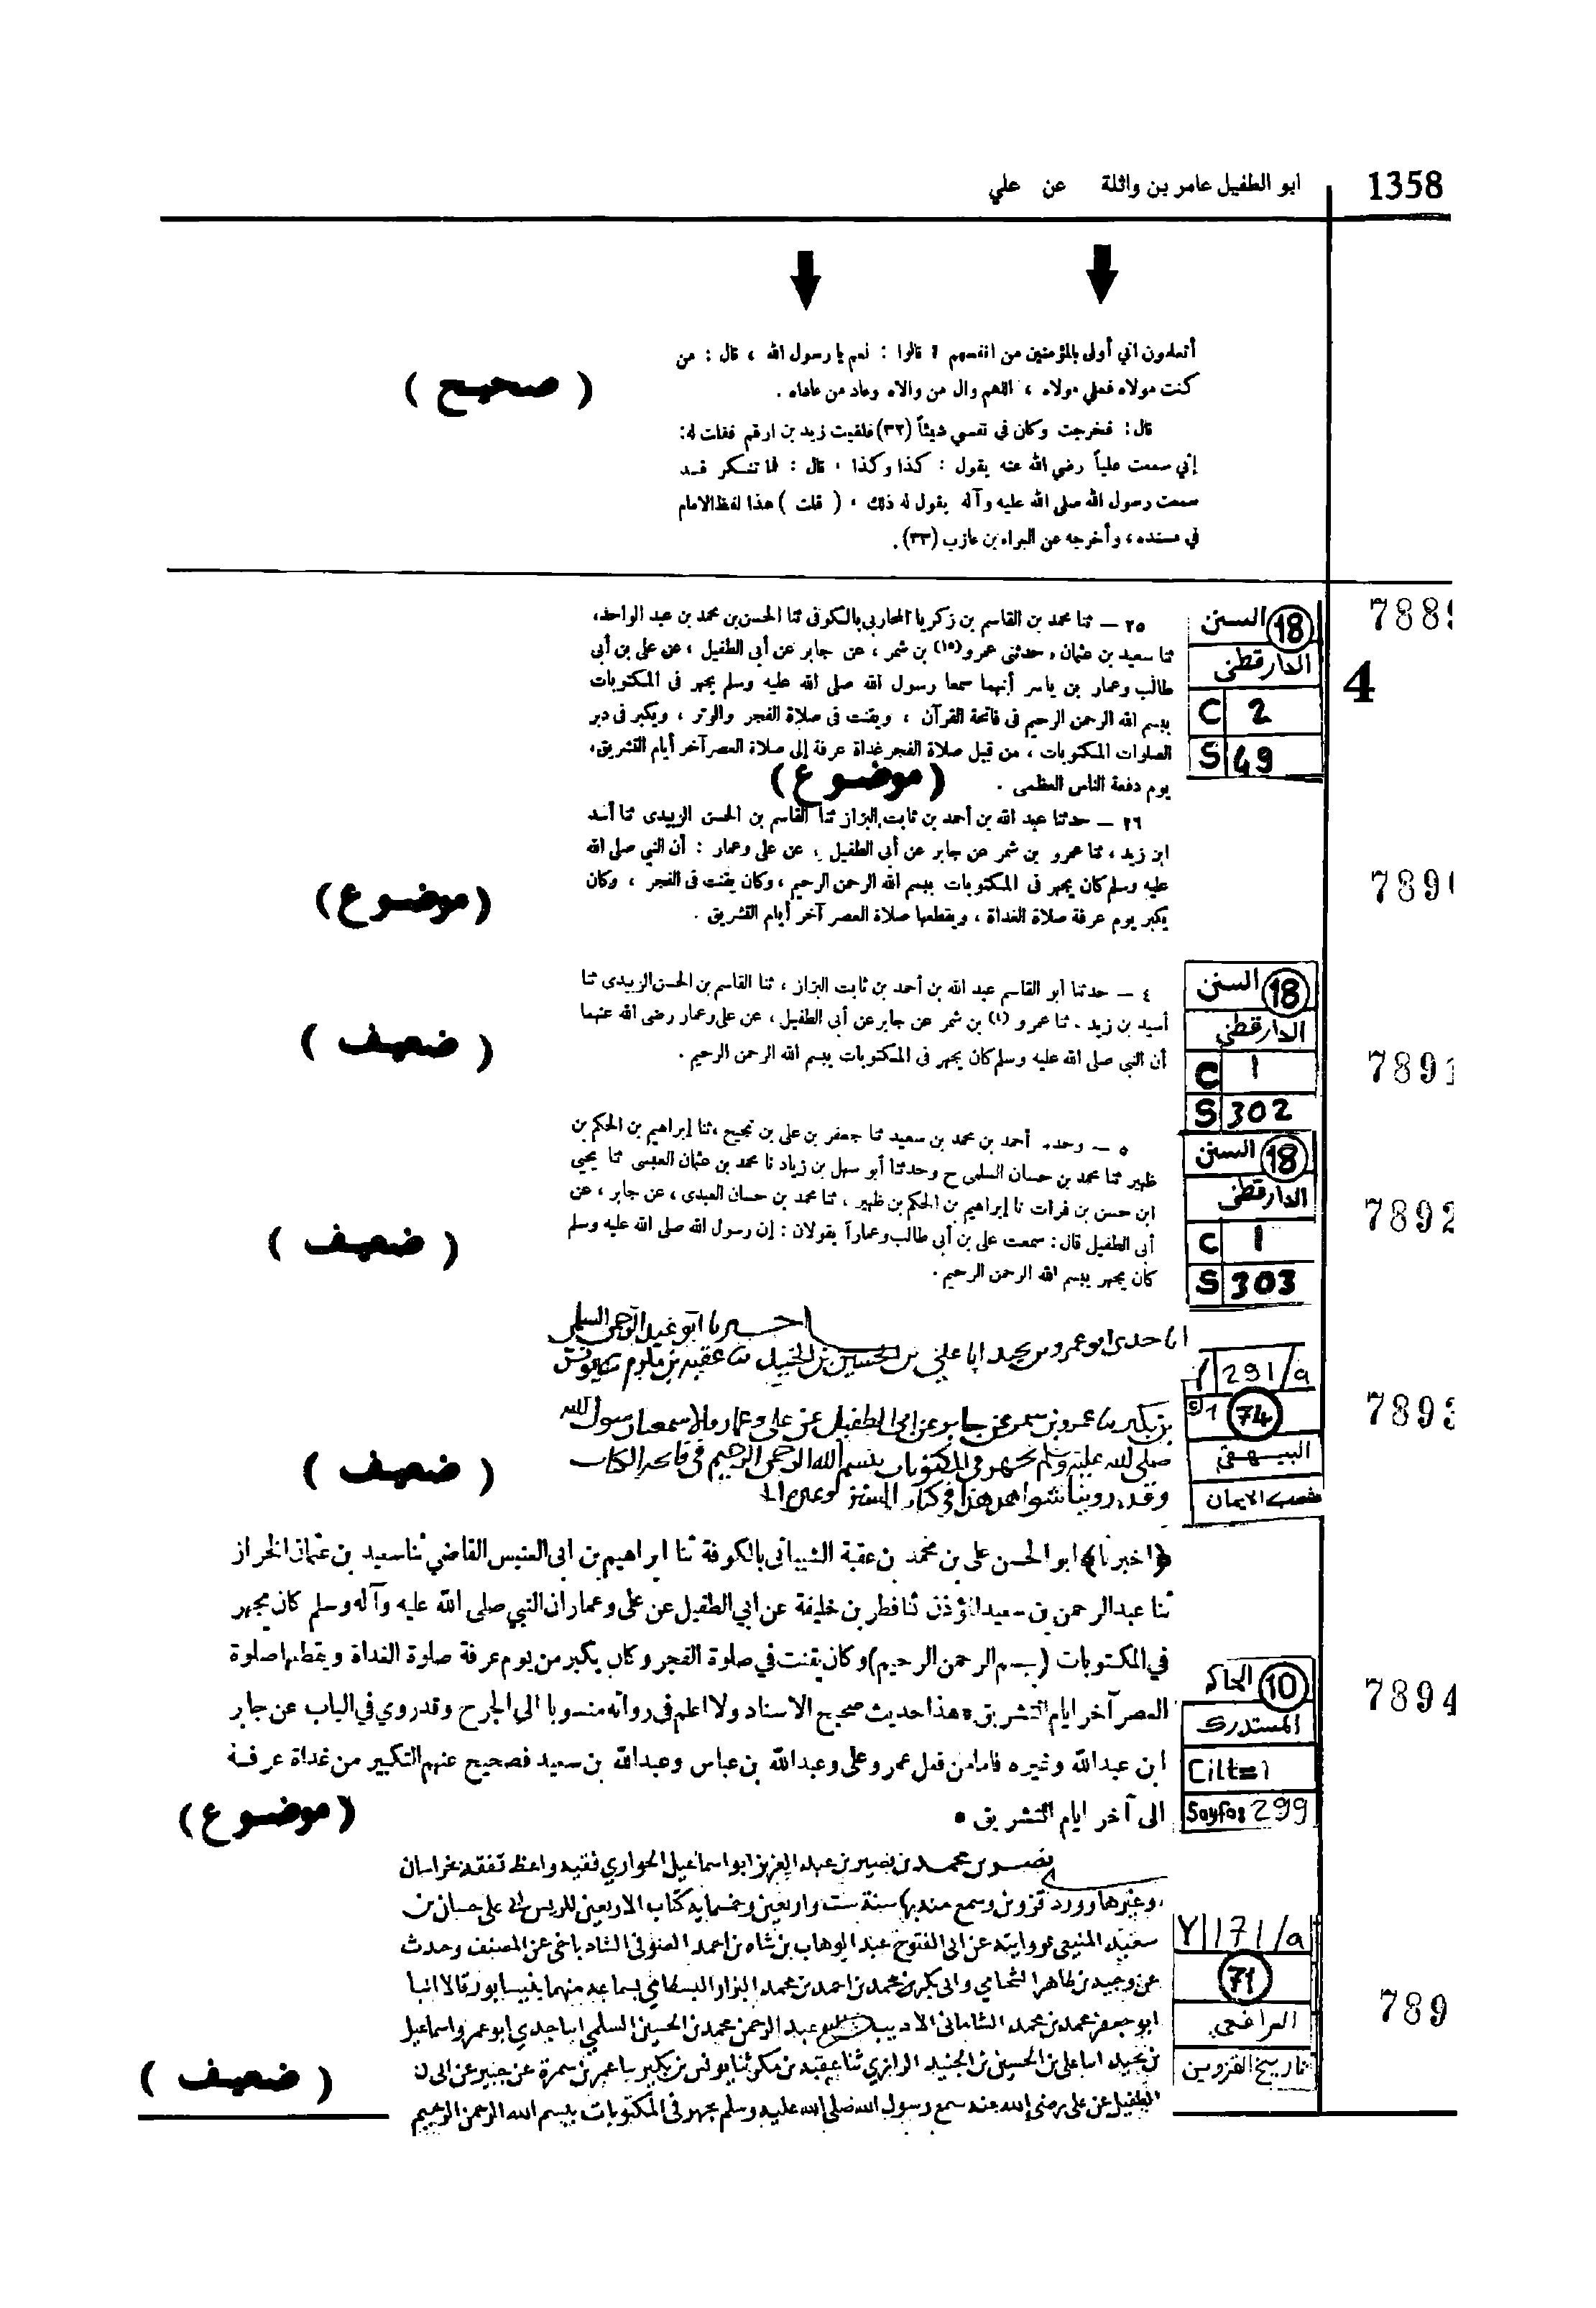 1358
ابو الطفيل عامر بن واثلة عن علي
أتعلمون اني أولى بالمؤمنين من انفسهم ؟ قالوا : نعم يا رسول الله ، قال : من
كنت مولاه فعلي مولاه ، اللهم وال من والاه وعاد من عاداه .
( صحيح )
قال : فخرجت وكان في نفسي شيئاً (٣٢) فلقيت زيد بن ارقم فقلت له:
إني سمعت علياً رضي الله عنه يقول : كذا وكذا ، قال : فما تنكر قد
سمعت رسول الله صلى الله عليه وآله يقول له ذلك ، ( قلت ) هذا لفظ الامام
في مسنده ، وأخرجه عن البراء بن عازب (٣٣) .
788
18 السنن
الدارقطني
C 2
S 49
4
٢٥ – ثنا محمد بن القاسم بن زكريا المحاربي بالكوفى ثنا الحسن بن محمد بن عبد الواحد،
ثنا سعيد بن عثمان ، حدثنى عمرو (١٥) بن شمر ، عن جابر عن أبى الطفيل ، عن على بن أبى
طالب وعمار بن ياسر أنهما سمعا رسول الله صلى الله عليه وسلم يجهر فى المكتوبات
ببسم الله الرحمن الرحيم فى فاتحة القرآن ، ويقنت فى صلاة الفجر والوتر ، ويكبر فى دبر
الصلوات المكتوبات ، من قبل صلاة الفجر غداة عرفة إلى صلاة العصر آخر أيام التشريق،
يوم دفعة الناس العظمى .
(موضوع)
٢٦ – حدثنا عبد الله بن أحمد بن ثابت البزاز ثنا القاسم بن الحسن الزبيدى ثنا أسد
ابن زيد ، ثنا عمرو بن شمر عن جابر عن أبى الطفيل ، عن على وعمار : أن النبى صلى الله
عليه وسلم كان يجهر فى المكتوبات ببسم الله الرحمن الرحيم ، وكان يقنت فى الفجر ، وكان
يكبر يوم عرفة صلاة الغداة ، ويقطعها صلاة العصر آخر أيام التشريق .
789
(موضوع)
18 السنن
الدارقطني
C 1
S 302
٤ – حدثنا أبو القاسم عبد الله بن أحمد بن ثابت البزاز ، ثنا القاسم بن الحسن الزبيدى ثنا
أسيد بن زيد . ثنا عمرو (٤) بن شمر عن جابر عن أبى الطفيل ، عن على وعمار رضى الله عنهما
أن النبى صلى الله عليه وسلم كان يجهر فى المكتوبات ببسم الله الرحمن الرحيم .
7891
( ضعيف )
18 السنن
الدارقطني
C 1
S 303
٥ – وحد. أحمد بن محمد بن سعيد ثنا جعفر بن على بن نجيح ، ثنا إبراهيم بن الحكم بن
ظهير ثنا محمد بن حسان السلمى ح وحدثنا أبو سهل بن زياد نا محمد بن عثمان العبسى ثنا يحيى
ابن حسن بن فرات نا إبراهيم بن الحكم بن ظهير ، ثنا محمد بن حسان العبدى ، عن جابر ، عن
أبى الطفيل قال : سمعت على بن أبى طالب وعماراً يقولان : إن رسول الله صلى الله عليه وسلم
كان يجهر ببسم الله الرحمن الرحيم .
7892
( ضعيف )
291/a
74
البيهقي
شعب الايمان
اخبرنا ابو عبد الرحمن السلمي
انا جدى ابو عمرو بن نجيد انا علي بن الحسين بن الجنيد عقبة بن مكرم يونس
بن بكير عمرو بن شمر عن جابر عن ابى الطفيل عن على وعمار سمعا رسول الله
صلى الله عليه وسلم يجهر فى المكتوبات ببسم الله الرحمن الرحيم فى فاتحة الكتاب
وقد روينا شواهد هذا فى كتاب السنن
7893
( ضعيف )
﴿اخبرنا﴾ ابو الحسن على بن محمد بن عقبة الشيبانى بالكوفة ثنا ابراهيم بن ابى العنبس القاضي ثنا سعيد بن عثمان الخراز
ثنا عبد الرحمن بن سعيد المؤذن ثنا فطر بن خليفة عن ابي الطفيل عن على وعمار ان النبي صلى الله عليه وآله وسلم كان يجهر
في المكتوبات (بسم الرحمن الرحيم) وكان يقنت في صلوة الفجر وكان يكبر من يوم عرفة صلوة الغداة ويقطعها صلوة
العصر آخر ايام التشريق * هذا حديث صحيح الاسناد ولا اعلم فى رواته منسوبا الى الجرح وقد روي في الباب عن جابر
ابن عبد الله وغيره فاما من فعل عمر وعلى وعبد الله بن عباس وعبد الله بن سعيد فصحيح عنهم التكبير من غداة عرفة
الى آخر ايام التشريق *
10 الحاكم
المستدرك
Cilt=1
Sayfa: 299
7894
(موضوع)
نصر بن محمد بن نصير بن عبد العزيز ابو اسماعيل الحواري فقيه واعظ تفقه بخراسان
وغيرها وورد قزوين وسمع منه بها سنة ست واربعين وخمسمايه كتاب الاربعين للرئيس ابى على حسان بن
سعيد المنيعى بروايته عن ابى الفتوح عبد الوهاب بن شاه بن احمد الصوفى الشادياخى عن المصنف وحدث
عن وجيه بن طاهر الشحامي وابى بكر بن محمد بن احمد بن محمد البزار البسطامي بسماعه منهما بنيسابور قالا انبا
ابو جعفر محمد بن محمد الشاماتى الاديب عبد الرحمن محمد بن الحسين السلمي انبا جدي ابو عمرو اسماعيل
بن نجيد انبا على بن الحسين بن الجنيد الرازي ثنا عقبة بن مكرم ثنا يونس بن بكير عن ابى
الطفيل عن على رضى الله عنه سمع رسول الله صلى الله عليه وسلم يجهر فى المكتوبات ببسم الله الرحمن الرحيم
Y 171/a
71
الرافعي
تاريخ القزوين
789
( ضعيف )